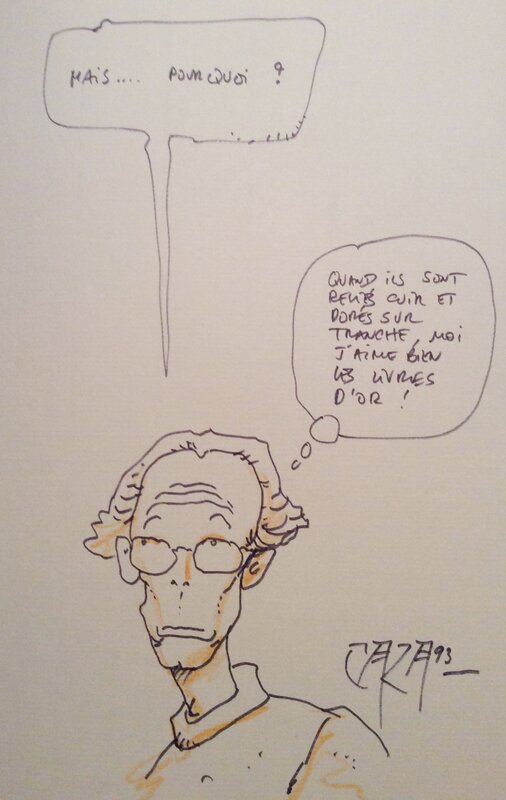 MAIS.... POURQUOI ?
QUAND ILS SONT
RELIÉS CUIR ET
DORÉS SUR
TRANCHE, MOI
J'AIME BIEN
LES LIVRES
D'OR !
CAZA 93